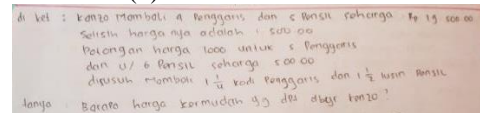 di ket : Kenzo Membeli 4 Penggaris dan 5 Pensil seharga Rp 19 500 00
Selisih harga nya adalah 1 500 00
Potongan harga 1000 untuk 5 Penggaris
dan u/ 6 Pensil seharga 500 00
disusuh Membeli 1 1/4 kodi Penggaris dan 1 1/2 lusin Pensil
tanya : Berapa harga termudah yg dbyr Kenzo ?